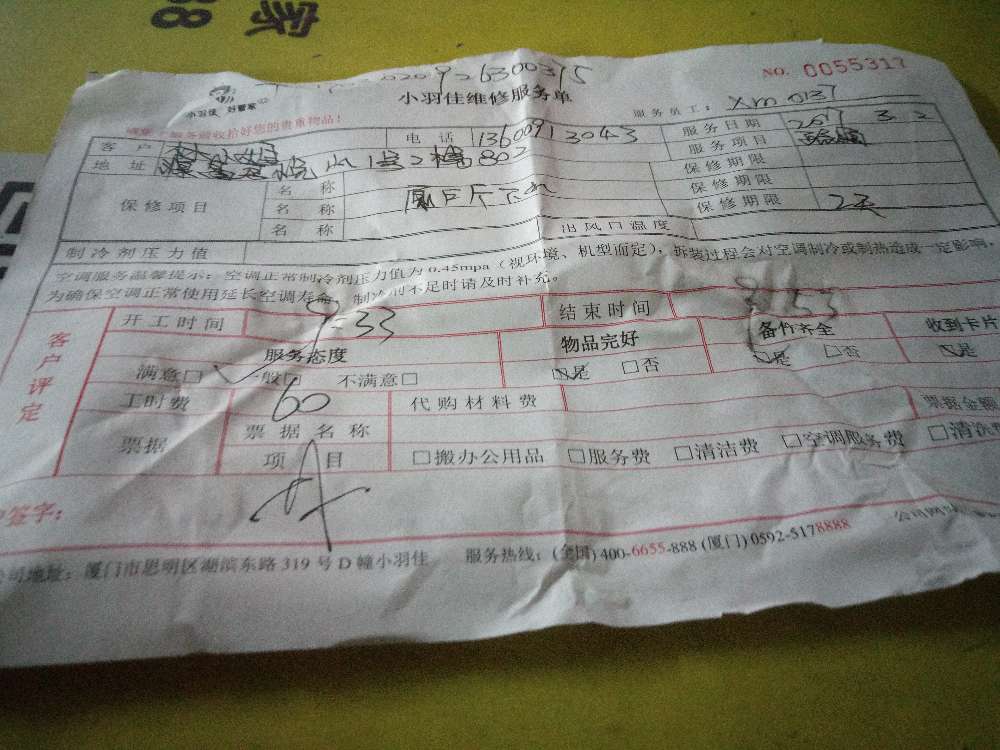 家
88
926300375
NO. 0055317
小羽佳 好管家
小羽佳维修服务单
服务员工: Xm0137
服务前收拾好您的贵重物品!
客户 电话 13600913043 服务日期 2017 3 2
地址 1号2梯802 服务项目
保修项目 名称 保修期限
名称 保修期限
名称 保修期限 7天
出风口温度
制冷剂压力值
空调服务温馨提示: 空调正常制冷剂压力值为 0.45mpa (视环境、机型而定), 拆装过程会对空调制冷或制热造成一定影响,
为确保空调正常使用延长空调寿命, 制冷剂不足时请及时补充。
客户评定
开工时间 9:33 结束时间 9:53
服务态度 物品完好 备件齐全 收到卡片
满意□ 一般□ 不满意□ □是 □否 □是 □否 □是
工时费 60 代购材料费 票据金额
票据 票据名称
项目 □搬办公用品 □服务费 □清洁费 □空调服务费 □清洗
签字:
公司地址: 厦门市思明区湖滨东路 319 号 D 幢小羽佳 服务热线: (全国) 400-6655-888 (厦门) 0592-5178888 公司网